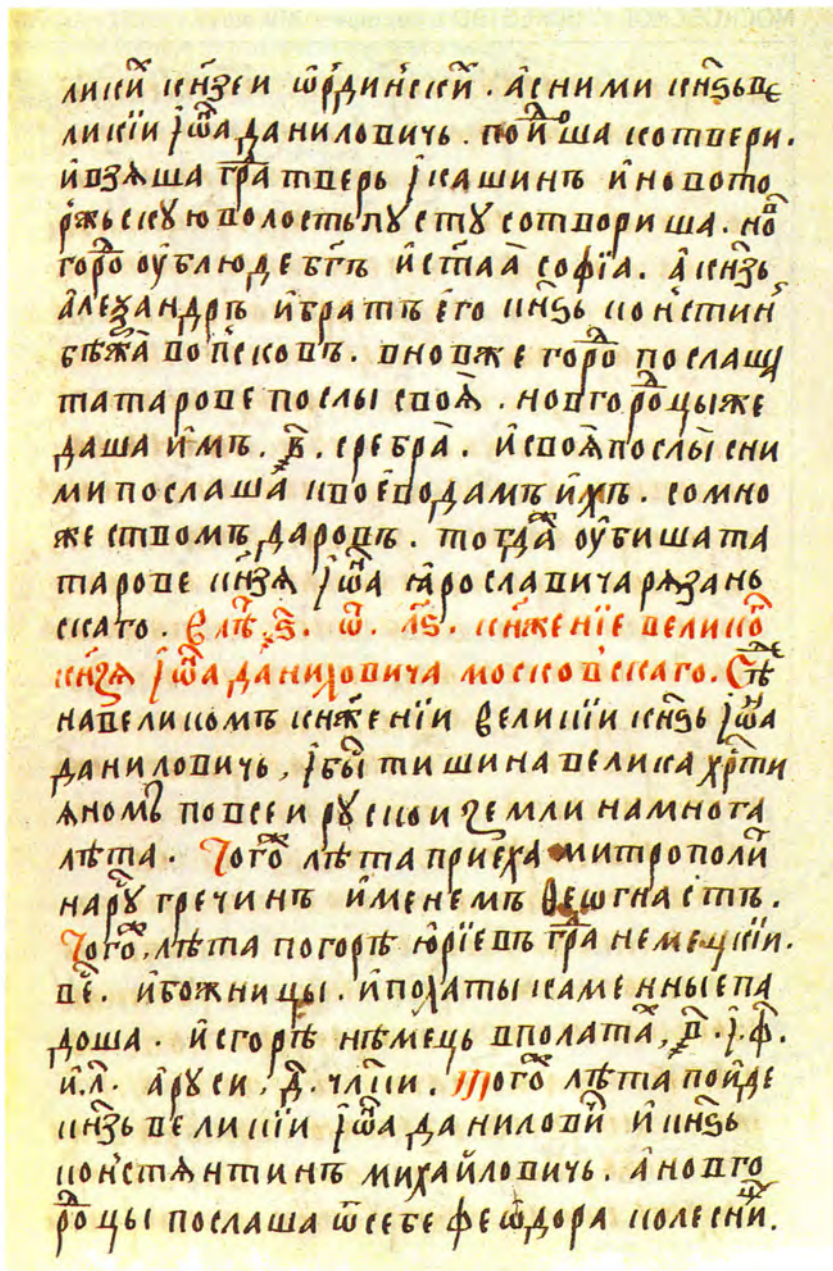 ликїи кнѧзеи ѡрдиньскїи. а с ними кнѧзь ве
ликїи Іѡа данилови чь. поидоша ко твери.
и взѧша гра тверь і кашинъ и новото
ржьскую волость пусту сотвориша. но
горо оублюде бгъ и стаа софїа. а кнзь
алеѯандръ и братъ его кнѕь констѧнтин
бѣжа во псковъ. в новже горо послаша
татарове послы своѧ. новгороцы же
даша имъ. ҂в. сребра. и своѧ послы с ни
ми послаша к воеводамъ ихъ. со мно
жеством даровъ. тогда оубиша та
тарове кнзѧ Іѡа ꙗрославича рѧзань
скаго. В лѣ ҂ѕ. ѡ. лѕ. кнжение велико
кнзѧ Іѡа даниловича московскаго. Сѣ
на великомъ кнженїи великїи кнѕь Іѡа
даниловичь, і бы тишина велика хрти
ѧномъ по всеи руской земли на многа
лѣта. Того лѣта приеха митрополи
на ру гречинъ именемъ Ѳеѡгнастъ.
Того лѣта погорѣ юрїевъ гра немецкїи.
ве. и божницы. и полаты каменные па
доша. и сгорѣ нѣмець в полата, ҂в. і. ф.
и. л. а руси, д. члци. Того лѣта поиде
кнзь великїи Іѡа данилови и кнѕь
констѧнтинъ михайловичь. а новго
роцы послаша ѿ себе феѡдора колесни.